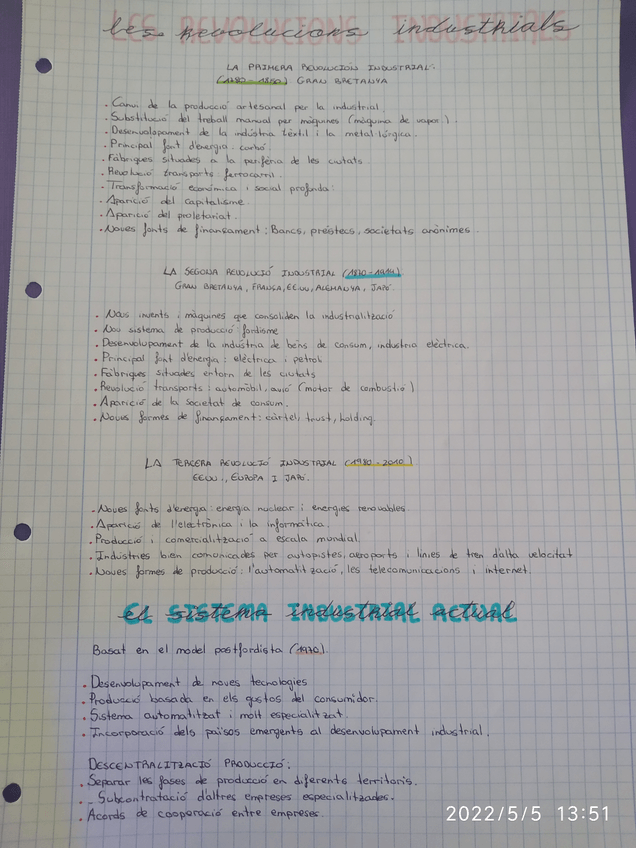 les revolucions industrials
LA PRIMERA REVOLUCIÓN INDUSTRIAL:
(1780-1850) GRAN BRETANYA
· Canvi de la producció artesanal per la industrial.
· Substitució del treball manual per màquines (màquina de vapor).
· Desenvolupament de la indústria tèxtil i la metal·lúrgica.
· Principal font d'energia: carbó.
· Fàbriques situades a la perifèria de les ciutats.
· Revolució transports: ferrocarril.
· Transformació econòmica i social profunda:
· Aparició del capitalisme.
· Aparició del proletariat.
· Noves fonts de finançament: Bancs, préstecs, societats anònimes.
LA SEGONA REVOLUCIÓ INDUSTRIAL (1870-1914)
GRAN BRETANYA, FRANÇA, EEUU, ALEMANYA, JAPÓ.
· Nous invents i màquines que consoliden la industrialització
· Nou sistema de producció: fordisme
· Desenvolupament de la indústria de béns de consum, industria elèctrica.
· Principal font d'energia: elèctrica i petroli
· Fàbriques situades entorn de les ciutats
· Revolució transports: automòbil, avió (motor de combustió)
· Aparició de la societat de consum.
· Noves formes de finançament: càrtel, trust, holding.
LA TERCERA REVOLUCIÓ INDUSTRIAL (1980-2010)
EEUU., EUROPA I JAPÓ.
· Noves fonts d'energia: energia nuclear i energies renovables.
· Aparició de l'electrònica i la informàtica.
· Producció i comercialització a escala mundial.
· Indústries bien comunicades per autopistes, aeroports i línies de tren d'alta velocitat
· Noves formes de producció: l'automatització, les telecomunicacions i internet.
el sistema industrial actual
Basat en el model postfordista (1970).
· Desenvolupament de noves tecnologies
· Producció basada en els gustos del consumidor.
· Sistema automatitzat i molt especialitzat.
· Incorporació dels països emergents al desenvolupament industrial.
DESCENTRALITZACIÓ PRODUCCIÓ:
· Separar les fases de producció en diferents territoris.
· Subcontratació d'altres empreses especialitzades.
· Acords de cooperació entre empreses.
2022/5/5 13:51